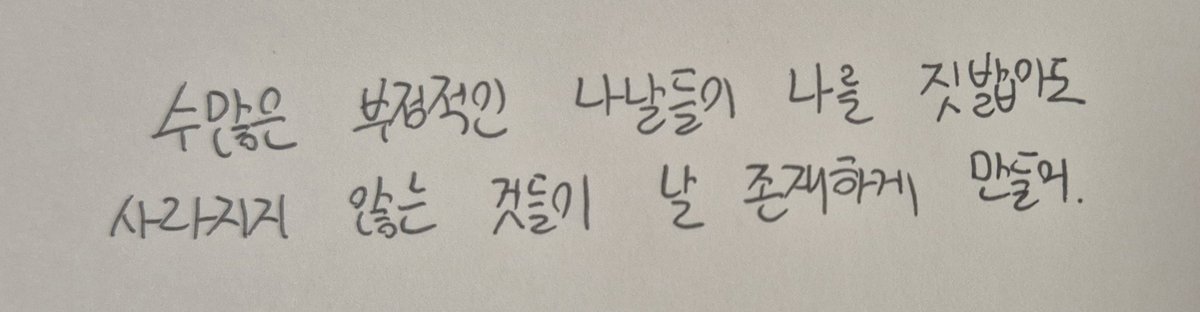 수많은 부정적인 나날들이 나를 짓밟아도
사라지지 않는 것들이 날 존재하게 만들어.